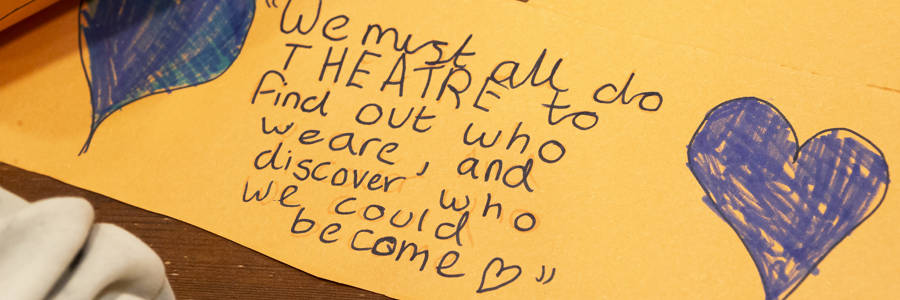 "We must all do
THEATRE to
find out who
we are, and
discover who
we could
become ♡"